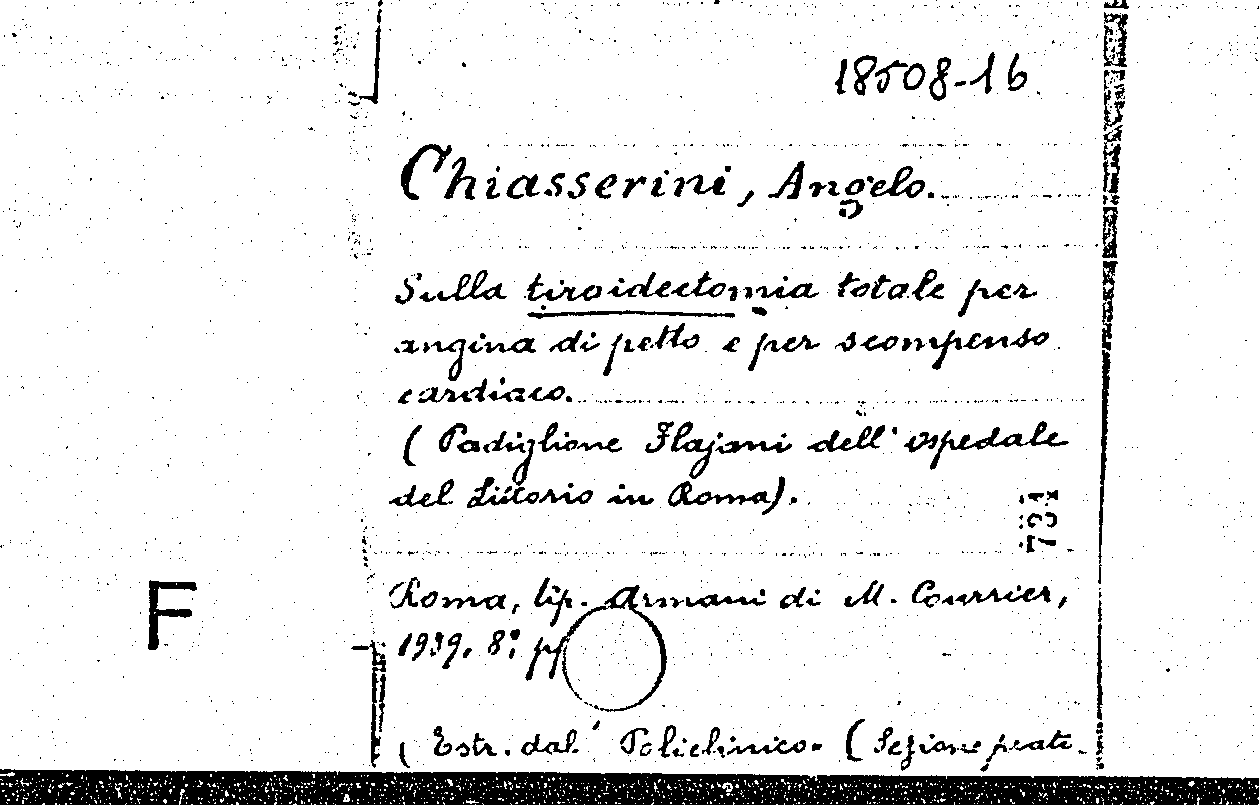 18508-16
Chiasserini, Angelo.
Sulla tiroidectomia totale per
angina di petto e per scompenso
cardiaco.
( Padiglione Flajani dell' ospedale
del Littorio in Roma).
731
Roma, tip. Armani di M. Courrier,
F
1939. 8° pp
( Estr. dal Policlinico. (Sezione prati-